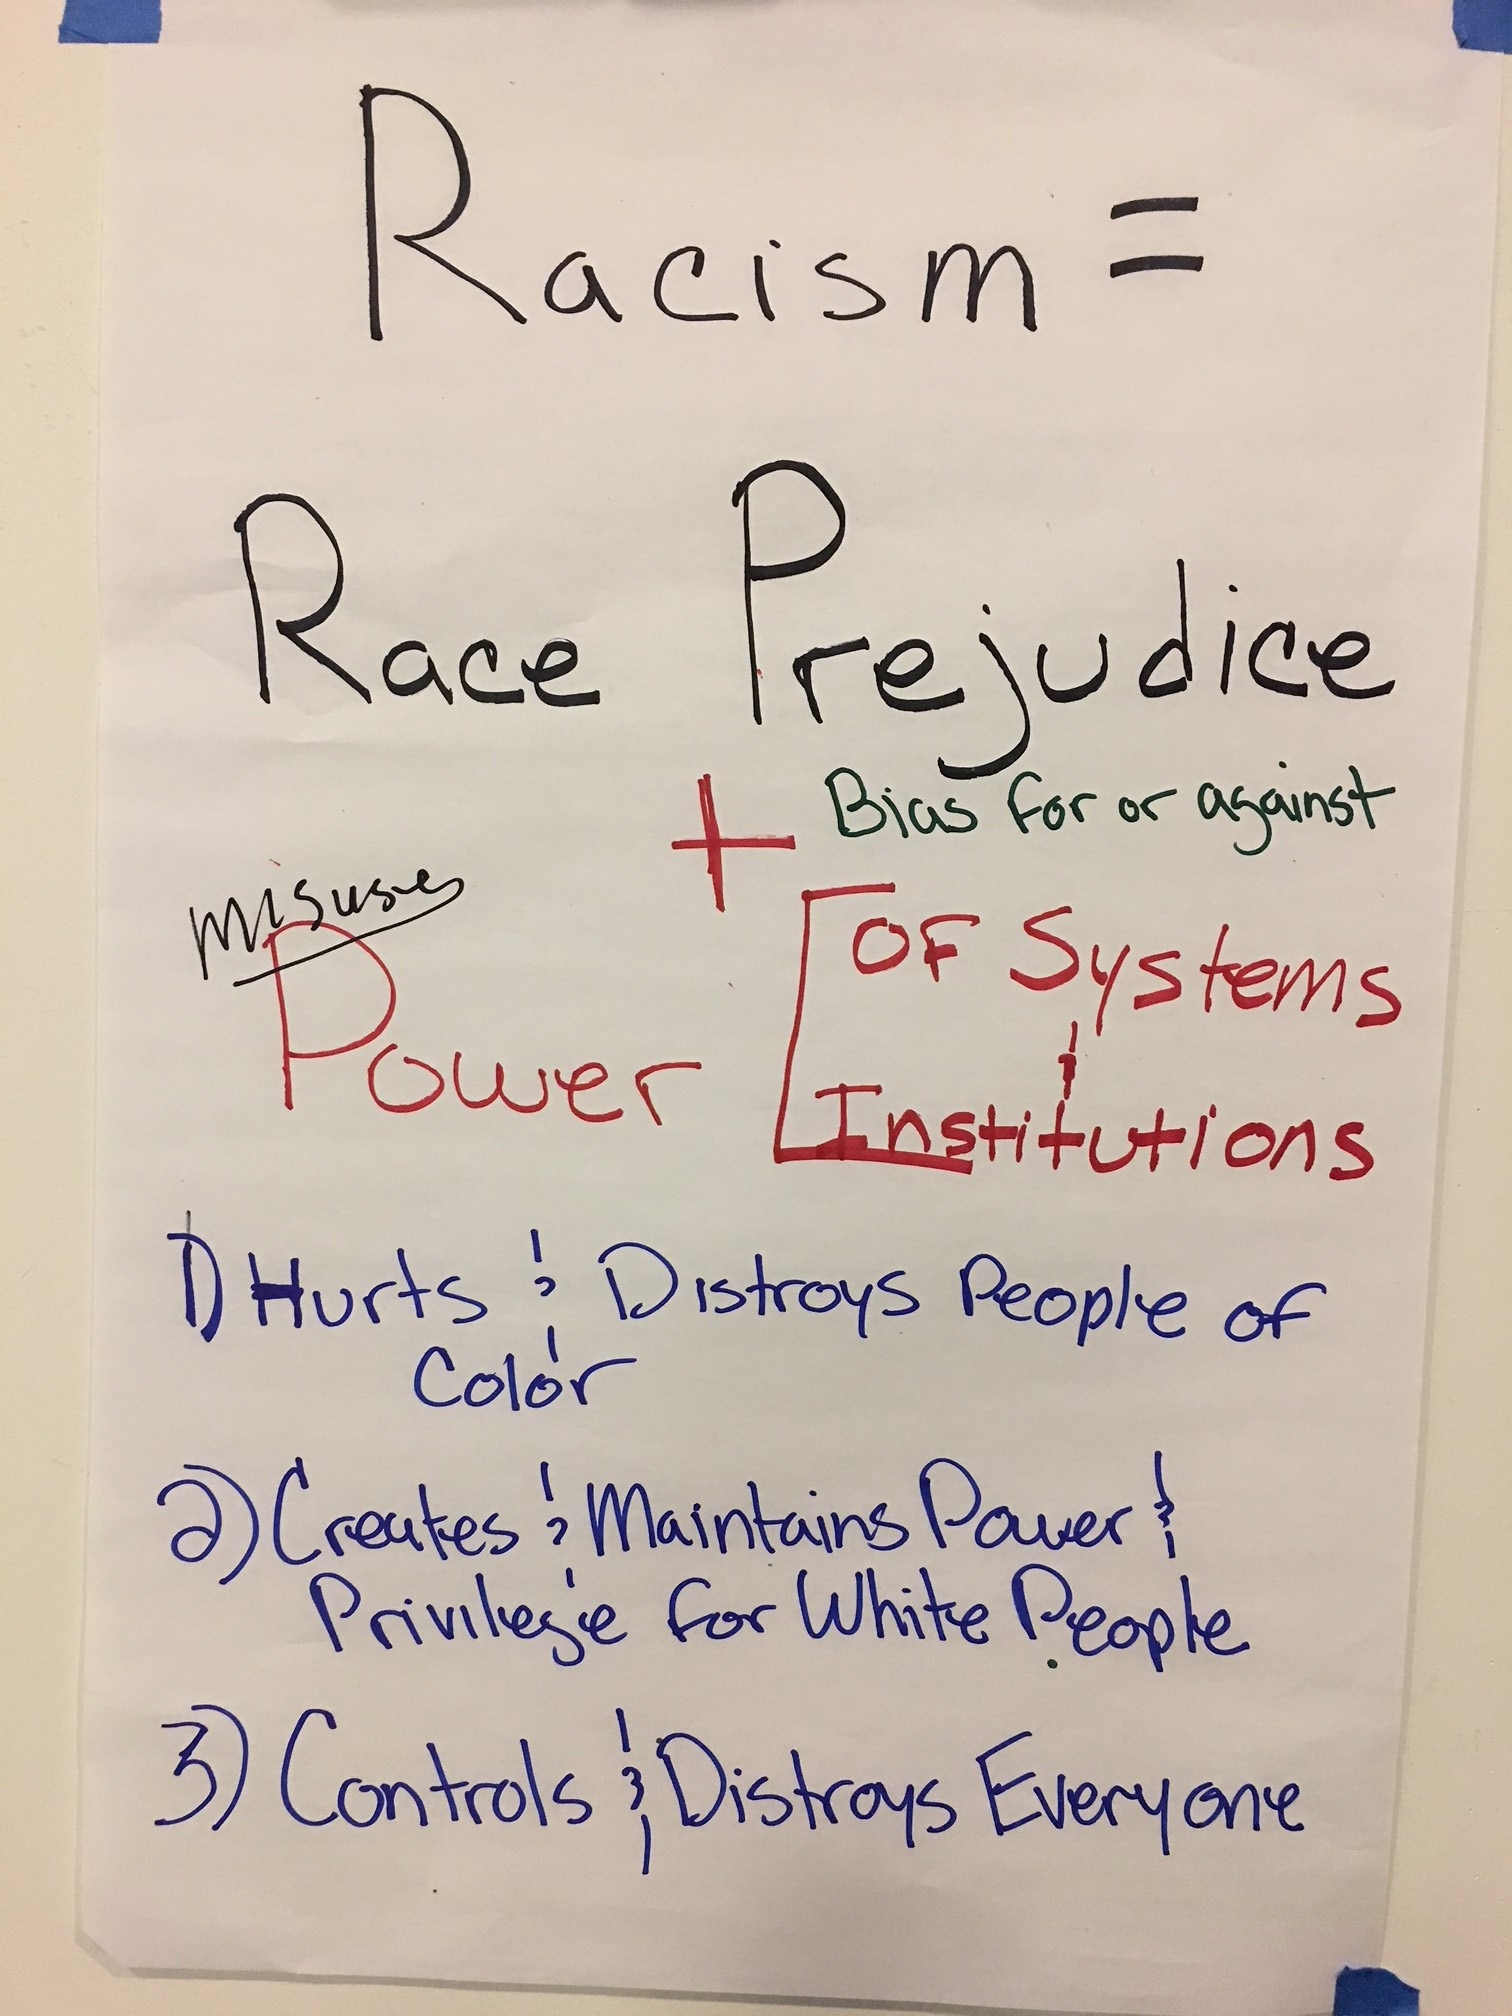 Racism =
Race Prejudice
+ Bias for or against
misuse
Power [ OF Systems
&
Institutions
1) Hurts & Distroys People of
Color
2) Creates & Maintains Power &
Privilege for White People
3) Controls & Distroys Everyone